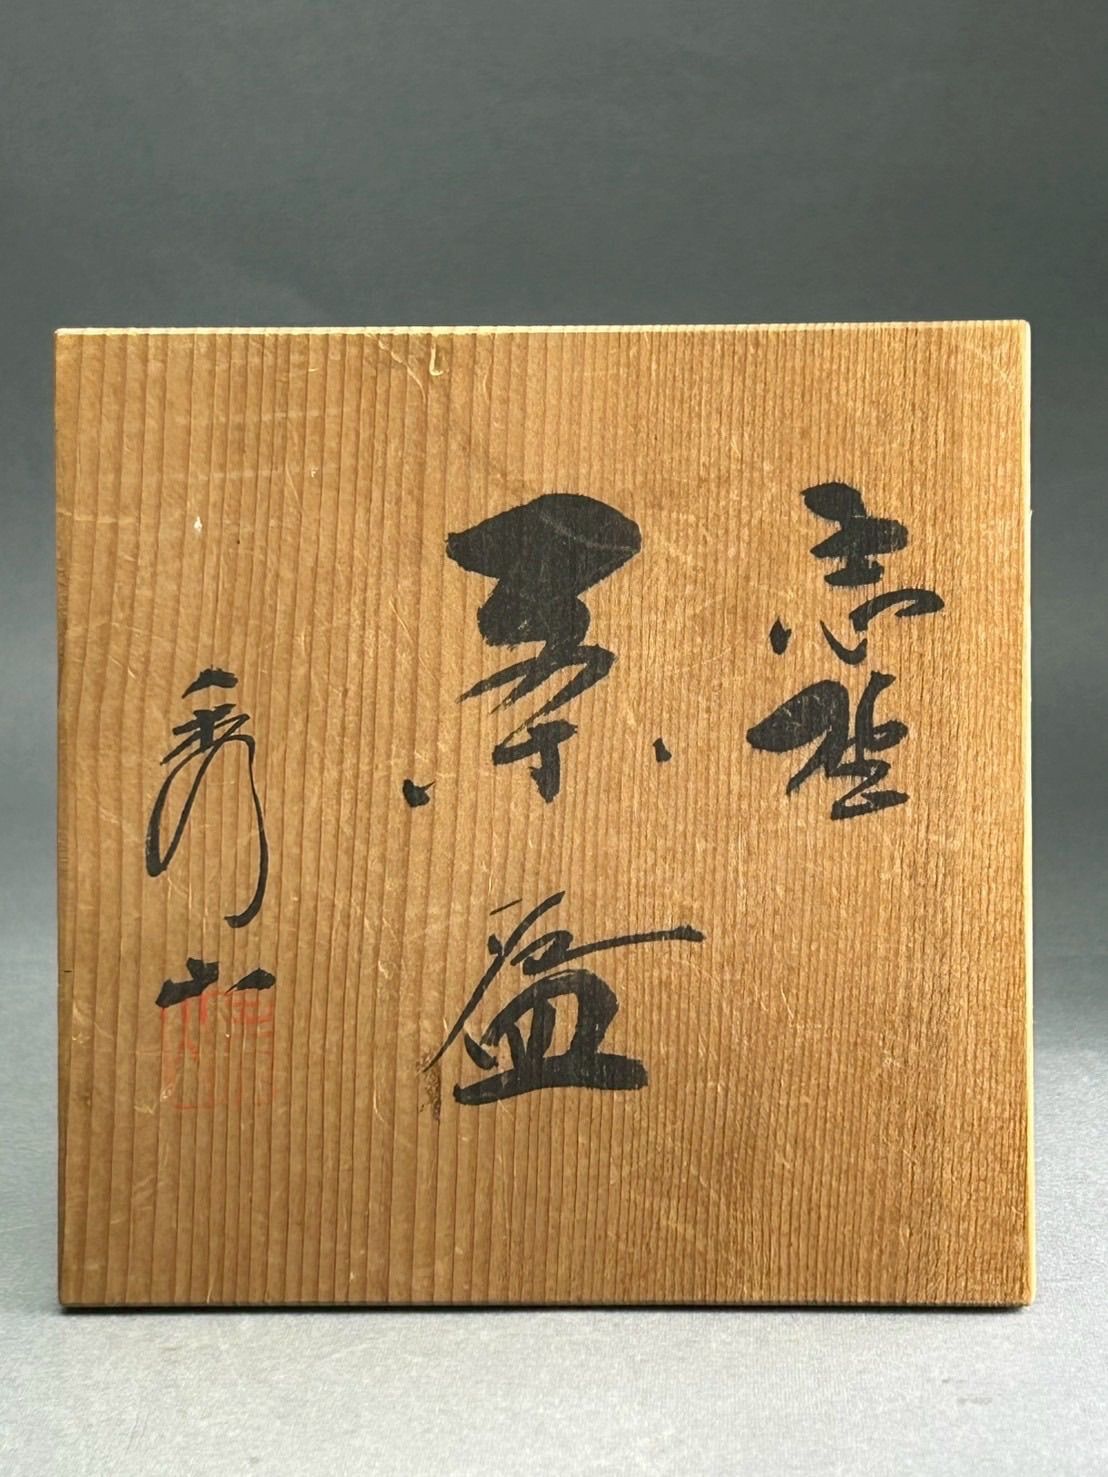 志野
茶盌
秀山